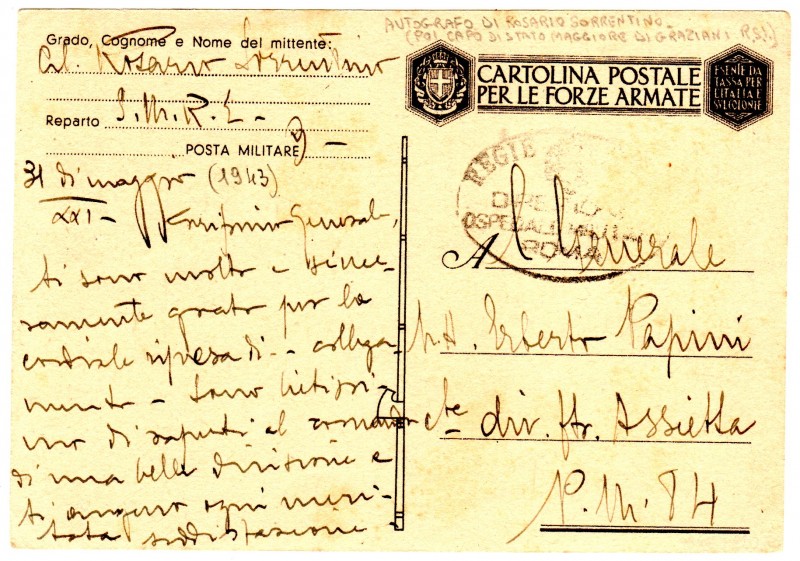 AUTOGRAFO DI ROSARIO SORRENTINO
(POI CAPO DI STATO MAGGIORE DI GRAZIANI R.S.I.)
Grado, Cognome e Nome del mittente:
Col. Rosario Sorrentino
S.M.R.E.
Reparto
POSTA MILITARE 9
31 di maggio (1943)
XXI
Carissimo Generale,
ti sono molto e since-
ramente grato per la
cordiale ripresa di collega
mento - Sono lietissi-
mo di saperti al comando
di una bella divisione e
ti auguro ogni meri-
tata soddisfazione
CARTOLINA POSTALE
PER LE FORZE ARMATE
ESENTE DA
TASSA PER
L'ITALIA E
SUE COLONIE
REGIE
OSPEDALE
ROMA
A Generale
Erberto Papini
Cte div. ftr. Assietta
P.M. 84